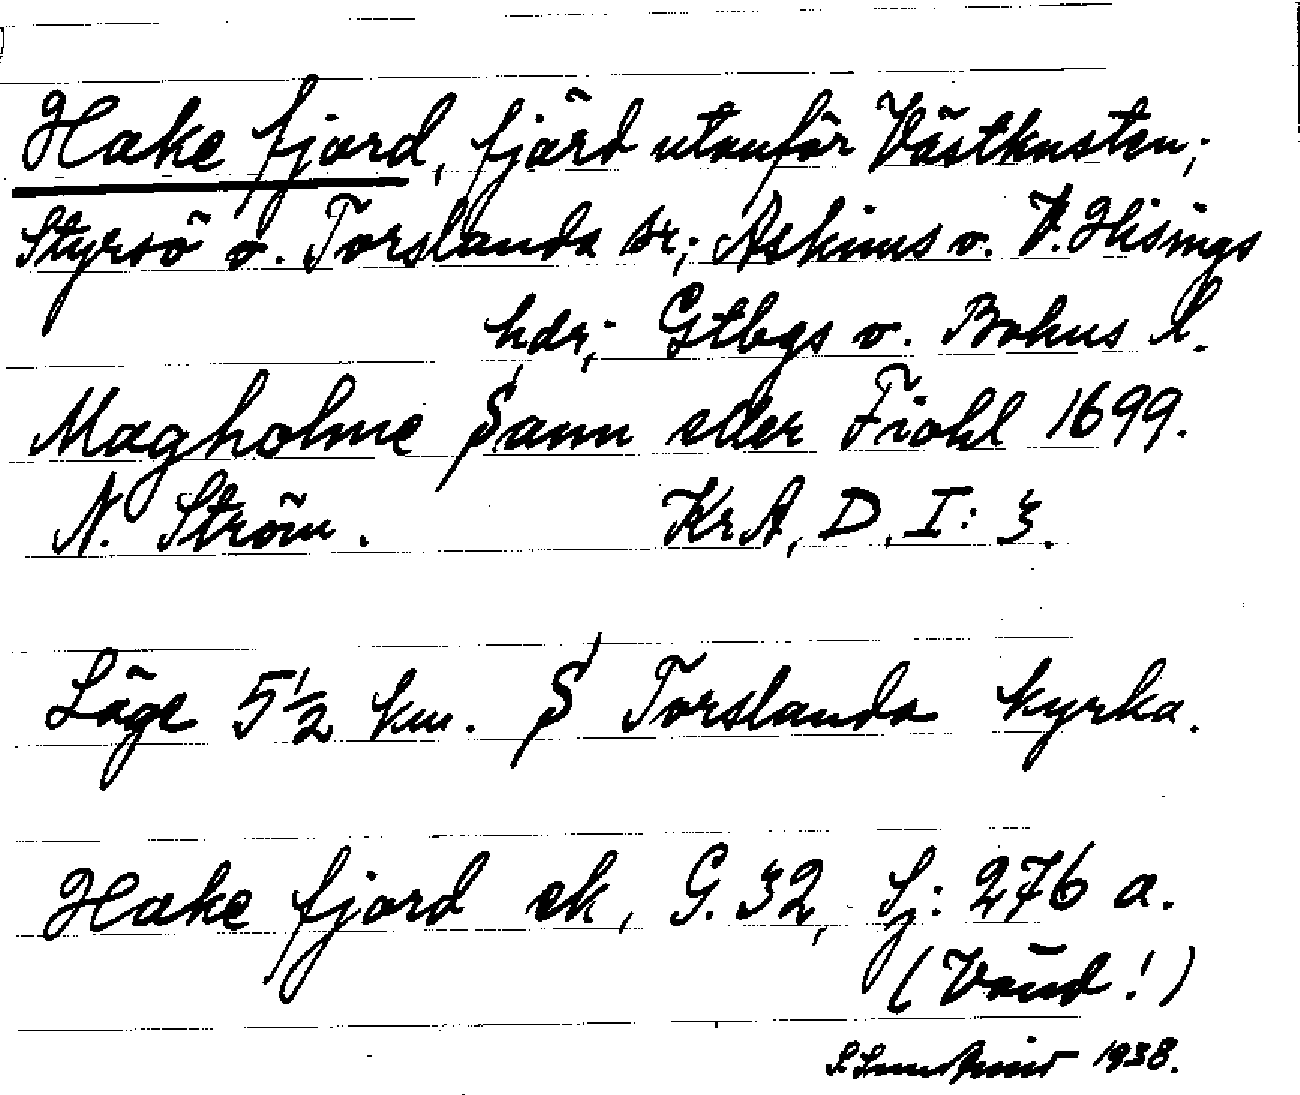 Hake fjord, fjärd utanför Västkusten;
Styrsö o. Torslanda sr; Askims o. V. Hisings
hdr; Gtbgs o. Bohus l.
Magholme
eller
1699.
N. Ström. KrA, D, I: 3.
Läge 5½ km. S Torslanda kyrka.
Hake fjord ek, G. 32, Sj: 276 a.
(Vänd!)
1938.